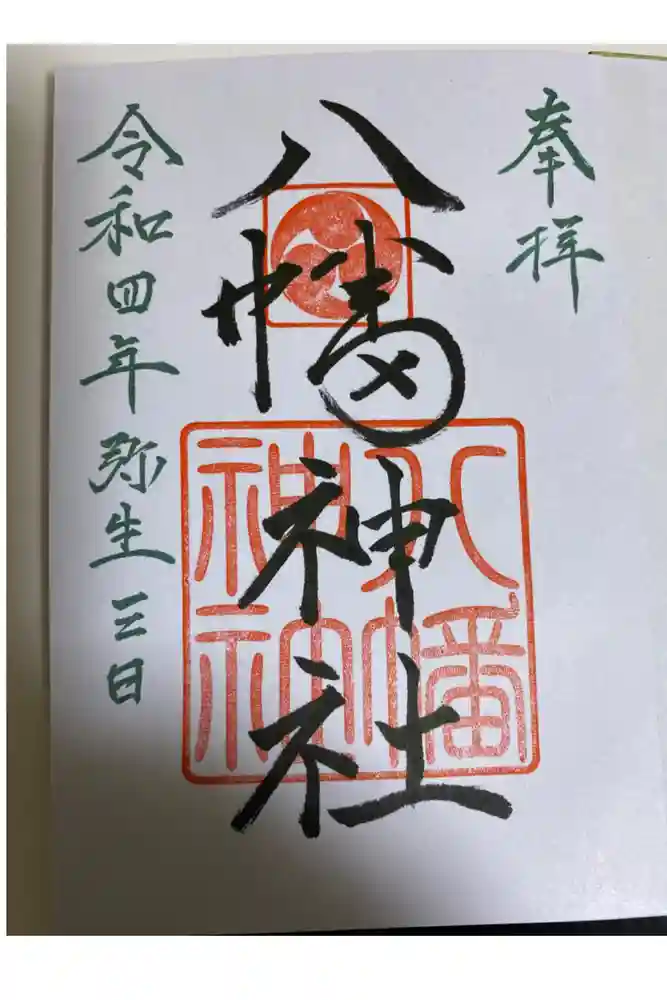 奉拝
八幡神社
令和四年弥生三日
八幡
神社